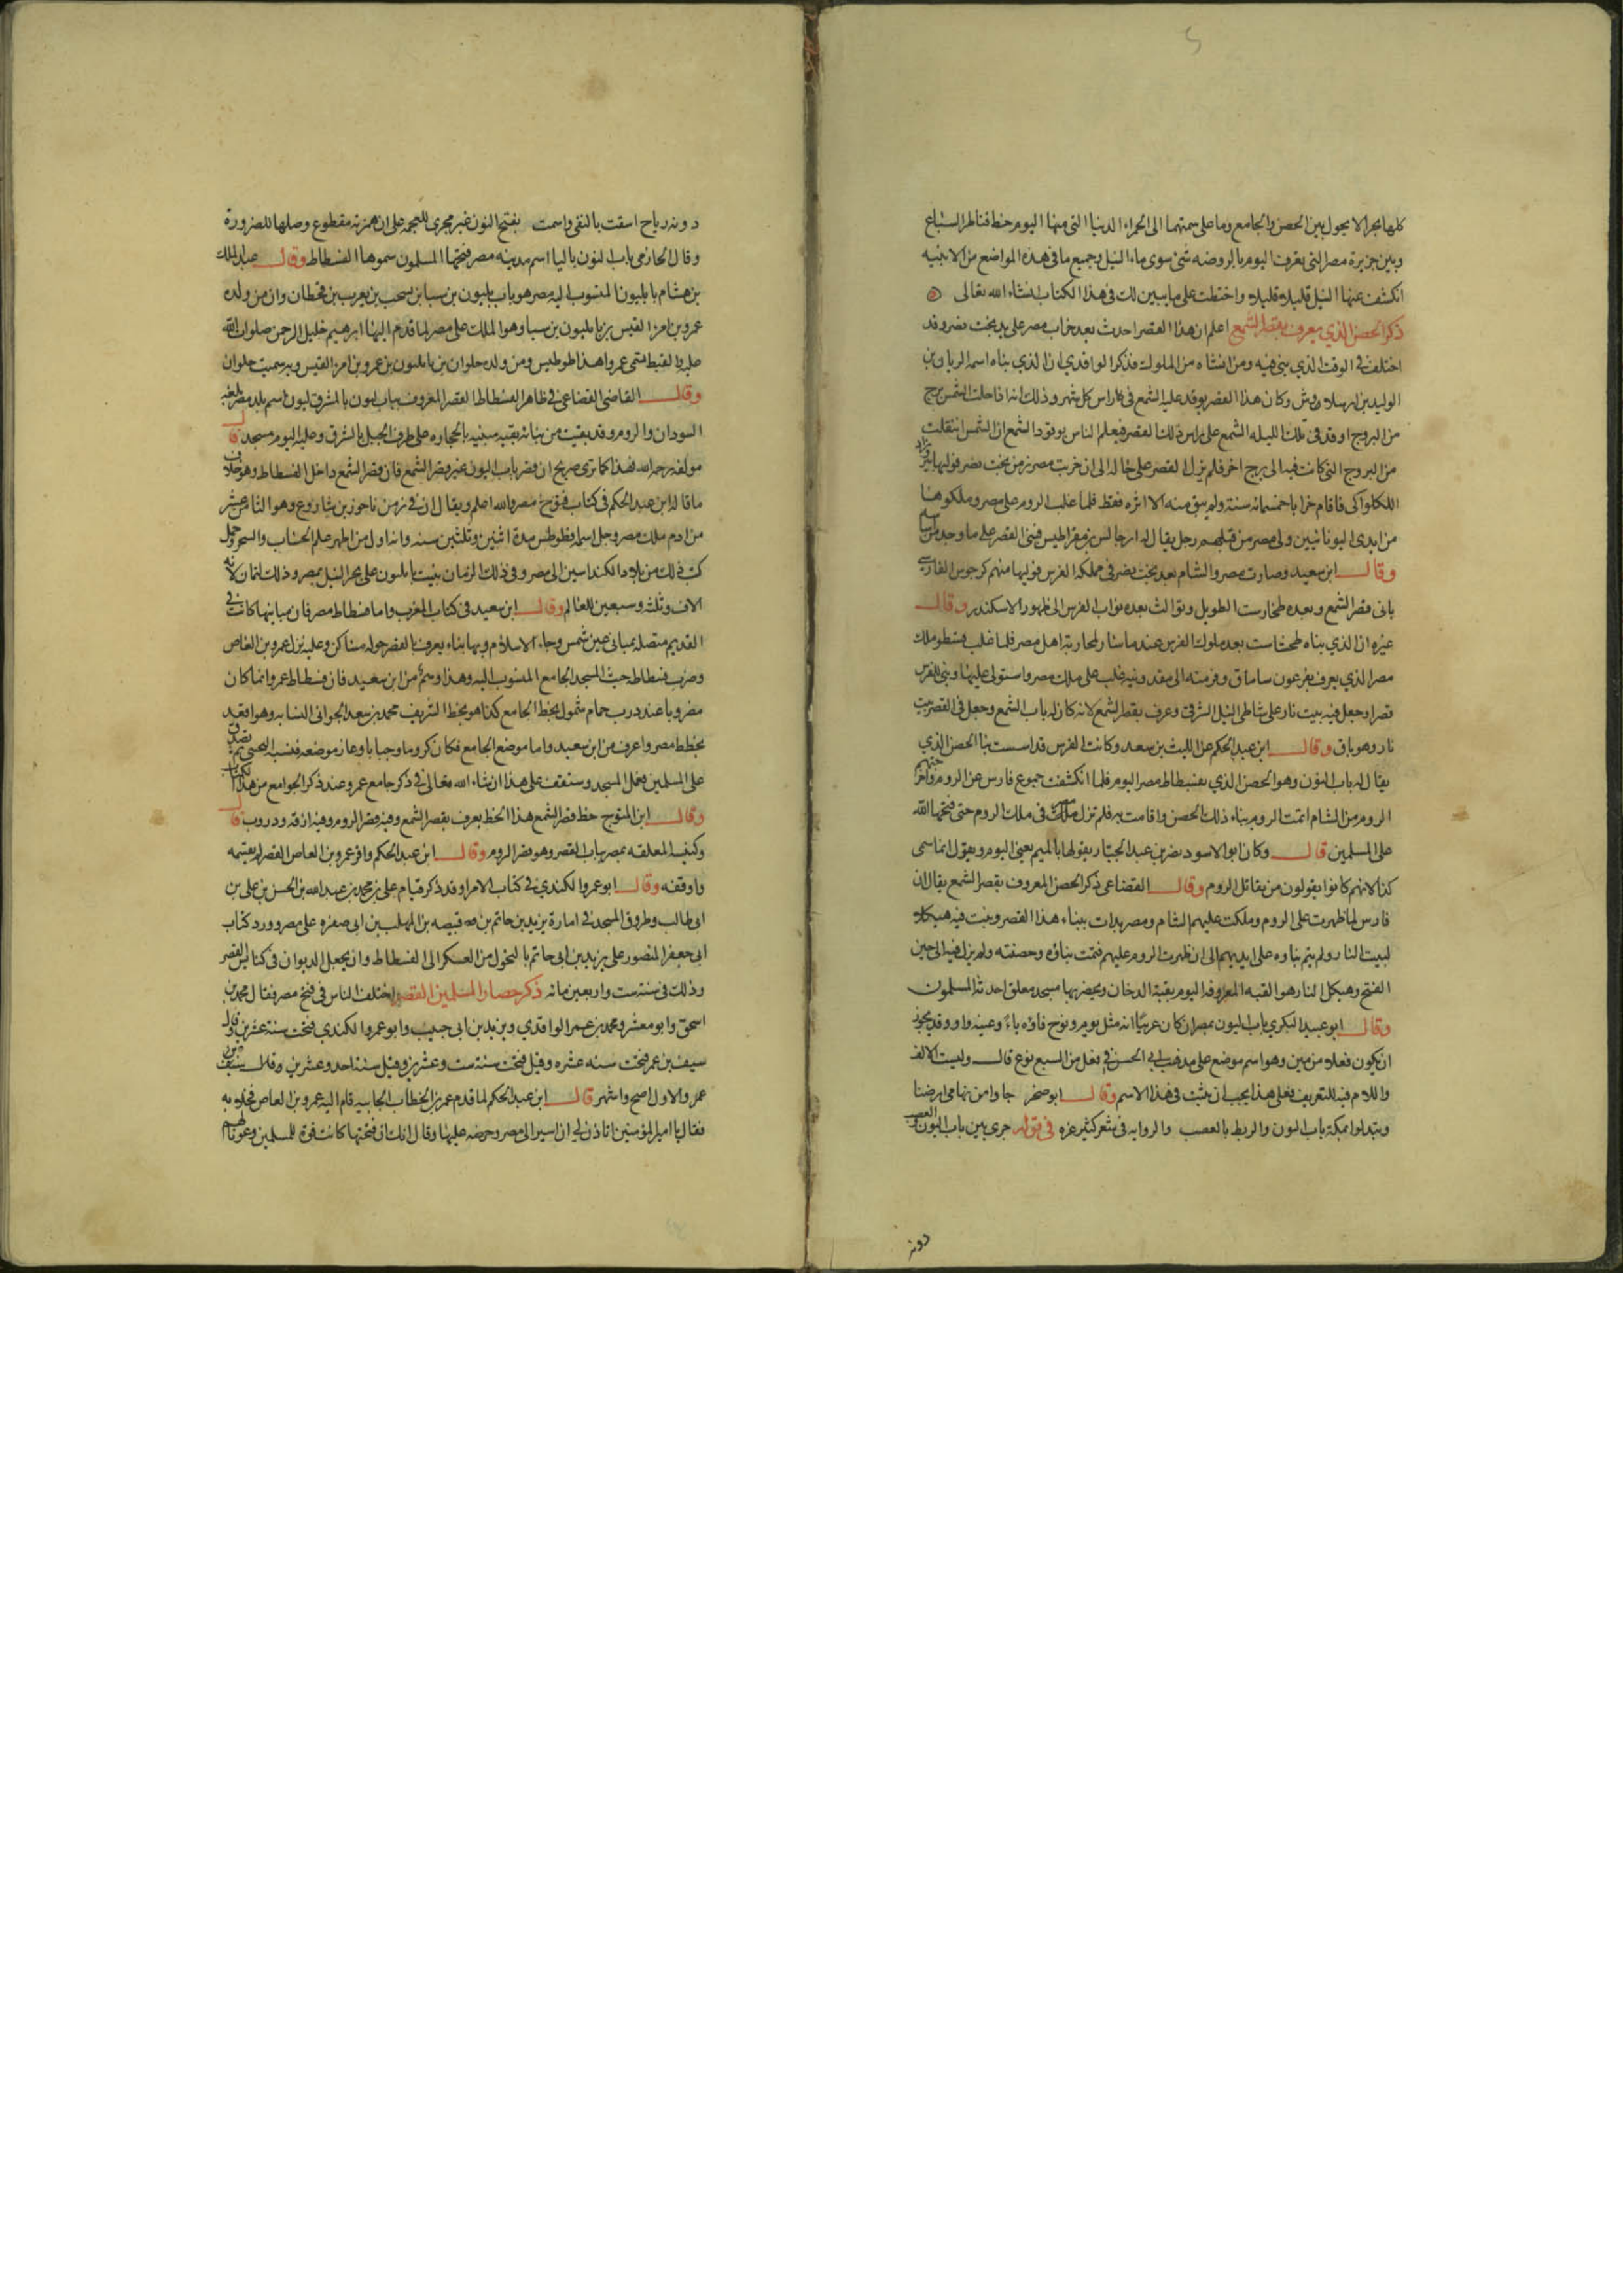 كلها بحرا لا يحول بين الحصن والجامع وما على سمتهما الى الحمراء الدنيا التي منها اليوم خط قناطر السباع
وبين جزيرة مصر التي يعرف اليوم بالروضه شئ سوى ماء النيل وجميع ما في هذه المواضع من الابنيه
انكشف عنها النيل قليلا قليلا واختطت على ما يبين لك في هذا الكتاب انشاء الله تعالى
ذكر الحصن الذي يعرف بقصر الشمع اعلم ان هذا القصر احدث بعد خراب مصر على يد بخت نصر وقد
اختلف في الوقت الذي بنى فيه ومن انشاه من الملوك فذكر الواقدي ان الذي بناه اسمه الريان بن
الوليد بن ارسلاووش وكان هذا القصر يوقد عليه الشمع في كل راس كل شهر وذلك انه اذا حلت الشمس برج
من البروج اوقد في تلك الليله الشمع على راس ذلك القصر فيعلم الناس بوقود الشمع ان الشمس انتقلت
من البروج التي كانت فيه الى برج اخر فلم يزل القصر على حاله الى ان خربت مصر زمن بخت نصر
فاقام خرابا خمسمائه سنة ولم يبق منه الا اثره فقط فلما غلب الروم على مصر وملكوها
من ايدي اليونانيين ولى مصر من قبلهم رجل يقال له ارجاليس بن مقراطيس فبنى القصر على ما وجد من اساسه
وقال ابن سعيد وصارت مصر والشام بعد بخت نصر في مملكة الفرس فوليها منهم كرجوس الفارسي
بانى قصر الشمع وبعده طخارست الطويل وتوالت بعده نواب الفرس الى ظهور الاسكندر وقال
غيره ان الذي بناه طخشاست بعد ملوك الفرس عندما سار لمحاربة اهل مصر فلما غلب ملك
مصر الذي يعرف بفرعون ساماق وفر منه الى مقدونيه غلب على ملك مصر واستولى عليها وبنى للفرس
قصرا وجعل فيه بيت نار على شاطى النيل الشرقي وعرف بقصر الشمع لانه كان له باب الشمع وجعل في القصر بيت
نار وهو باق وقال ابن عبد الحكم عن الليث بن سعد وكانت الفرس قد اسست بنا الحصن الذي
يقال له باب اليون وهو الحصن الذي بفسطاط مصر اليوم فلما انكشفت جموع فارس عن الروم واخرجتهم
الروم من الشام اتمت الروم بناء ذلك الحصن واقامت به فلم تزل في ملك الروم حتى فتحها الله
على المسلمين قال وكان ابو الاسود نصر بن عبد الجبار يقولها بالميم يعنى اليوم ويقول انما سمى
كذا لانهم كانوا يقولون من يقاتل الروم وقال القضاعي ذكر الحصن المعروف بقصر الشمع يقال ان
فارس لما ظهرت على الروم وملكت عليهم الشام ومصر بدات ببناء هذا القصر وبنت فيه هيكلا
لبيت النار ولم يتم بناوه على ايديهم الى ان ظهرت الروم عليهم فتمت بناؤه وحصنته ولم يزل فيه الى حين
الفتح وهيكل النار هو القبه المعروفه اليوم بقبة الدخان وبحضرتها مسجد معلق احدثه المسلمون
وقال ابو عبيد البكري باب اليون بمصر ان كان عربيا انه مثل يوم ويوح فاؤه ياءً وعينه واو وقد يجوز
ان يكون فعلا من يين وهو اسم موضع على مذهب ابى الحسن في بعل من البيع بوع قال وليست الالف
واللام فيه للتعريف فعلى هذا يجب ان يثبت في هذا الاسم وقال ابو صخر جاوا من تهامى ارضنا
وتبدلوا بمكة باب اليون والريط بالعصب والروايه في شعر كثير عزه في قوله جرى بين باب اليون
دونه
دونه رياح اسقت بالنقى واسمت بفتح النون غير مجرى للعجمه على ان همزته مقطوع وصلها للضرورة
وقال الحازمي باب النون بالبا اسم مدينه مصر فتحها المسلمون سموها الفسطاط وقال عبد الملك
بن هشام بابليون المنسوب اليه مصر هو باب بليون بن سبا بن يشجب بن يعرب بن قحطان وان من ولده
عمرو بن امرء القيس بن بابليون بن سبا وهو الملك على مصر لما قدم اليها ابرهيم خليل الرحمن صلوات الله
عليه والقبط تسمى عمروا هذا طوطيس ومن ولده حلوان بن بابليون بن عمرو بن امرء القيس وبه سميت حلوان
وقال القاضي القضاعي في ظاهر الفسطاط القصر المعروف بباب ليون بالشرف ليون اسم بلد مصر بلغة
السودان والروم وقد بقيت من بنائه بقيه مبنيه بالحجاره على طرف الجبل بالشرف وعليه اليوم مسجد قال
مولفه رحمه الله فهذا كما ترى صريح ان قصر باب اليون غير قصر الشمع فان قصر الشمع داخل الفسطاط وهو خلاف
ما قاله ابن عبد الحكم في كتاب فتوح مصر والله اعلم ويقال ان في زمن ناحور بن شاروع وهو الثامن عشر
من ادم ملك مصر رجل اسمه فطوطس مدة اثنين وثلثين سنه وانه اول من اظهر علم الحساب والسحر وحمل
كتب ذلك من بلاد الكلدانيين الى مصر وفي ذلك الزمان بنيت بابليون على بحر النيل بمصر وذلك لتمام ثلاثة
الاف وثلث وسبعين للعالم وقال ابن سعيد في كتاب المغرب واما فسطاط مصر فان مبانيها كانت في
القديم متصله بمبانى عين شمس وجاء الاسلام وبها بناء يعرف بالقصر حوله مساكن وعليه نزل عمرو بن العاص
وضرب فسطاطه حيث المسجد الجامع المنسوب اليه وهذا وهم من ابن سعيد فان فسطاط عمرو انما كان
مضروبا عند درب حمام شمول بخط الجامع كذا هو بخط الشريف محمد بن سعد الجواني النسابه وهو اقعد
بخطط مصر واعرف من ابن سعيد واما موضع الجامع فكان كروما وحاز موضعه قيسبه التجيبي ثم تصدق به
على المسلمين فعمل المسجد وستقف على هذا ان شاء الله تعالى في ذكر جامع عمرو عند ذكر الجوامع من هذا الكتاب
وقال ابن المتوج خط قصر الشمع هذا الخط يعرف بقصر الشمع وفيه قصر الروم وفيه ازقه ودروب قال
وكنيسه المعلقه بمصر بباب القصر وهو قصر الروم وقال ابن عبد الحكم واقر عمرو بن العاص القصر لم يقسمه
واوقفه وقال ابو عمرو الكندي في كتاب الامرا وقد ذكر قيام علي بن محمد بن عبد الله بن الحسن بن علي بن
ابى طالب وطروق المسجد في امارة يزيد بن حاتم بن قبيصه بن المهلب بن ابى صفره على مصر وورد كتاب
ابى جعفر المنصور على يزيد بن ابى حاتم بالتحول من العسكر الى الفسطاط وان يجعل الديوان في كنايس القصر
وذلك في سنة ست واربعين مائه ذكر حصار المسلمين القصر اختلف الناس في فتح مصر فقال محمد بن
اسحق وابو معشر ومحمد بن عمر الواقدي ويزيد بن ابى حبيب وابو عمرو الكندي فتحت سنة عشرين وقال
سيف بن عمر فتحت سنه عشره وقيل فتحت سنة ست وعشرين وقيل سنة احد وعشرين وقيل
والاول اصح واشهر قال ابن عبد الحكم لما قدم عمر بن الخطاب الجابيه قام اليه عمرو بن العاص فخلا به
فقال يا امير المؤمنين اتاذن لي ان اسير الى مصر وحرضه عليها وقال انك ان فتحتها كانت قوة للمسلمين وعونا لهم